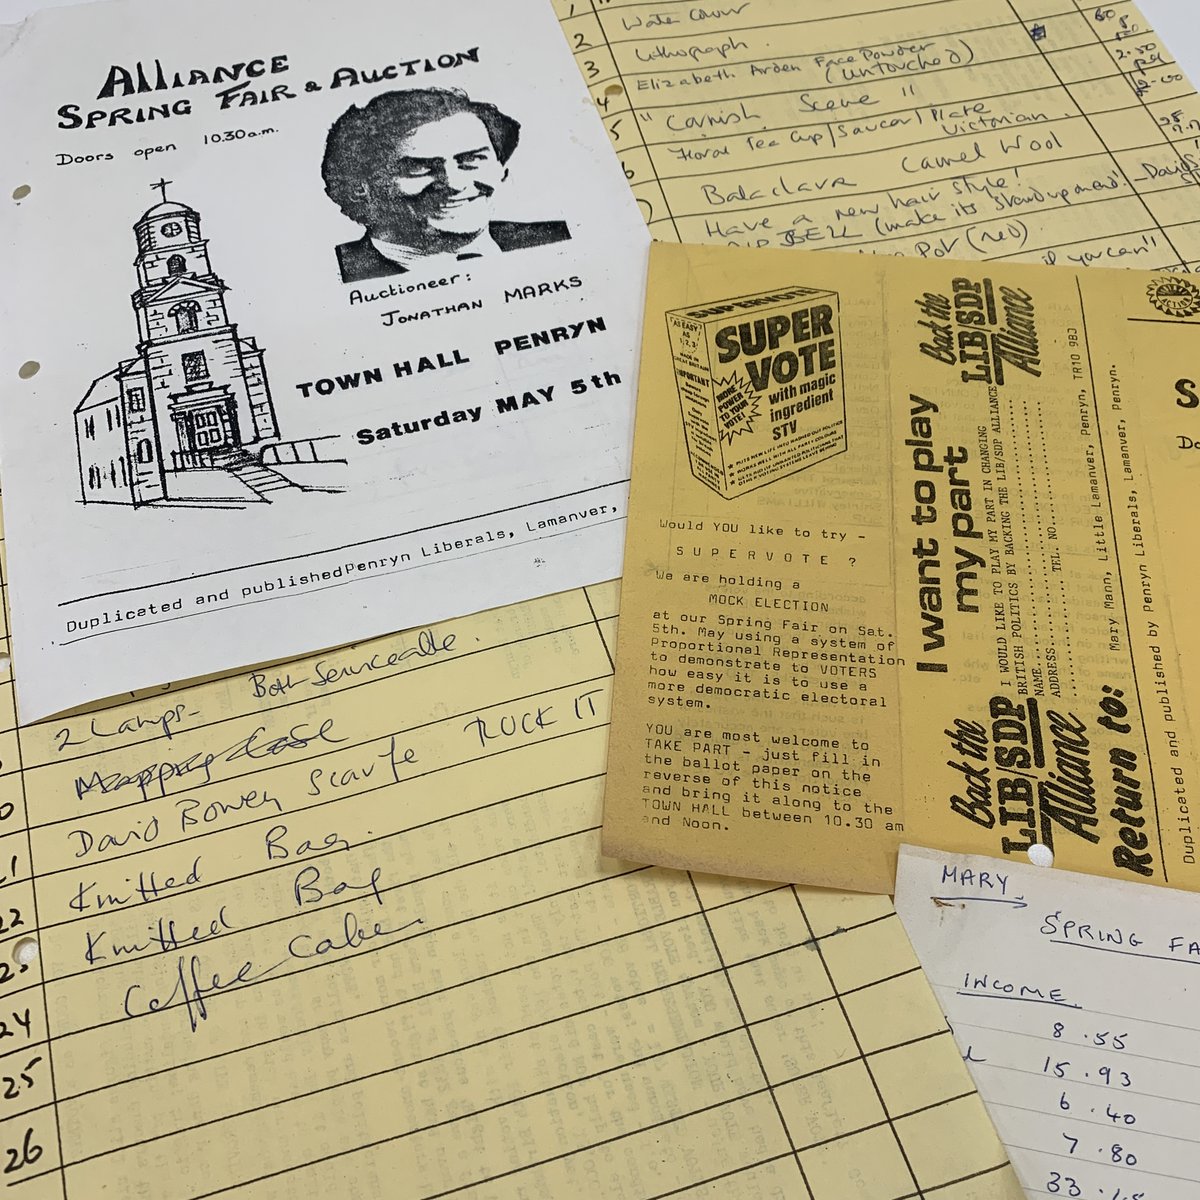 ALLIANCE
SPRING FAIR & AUCTION
Doors open 10.30a.m.
Auctioneer:
JONATHAN MARKS
TOWN HALL PENRYN
Saturday MAY 5th
Duplicated and published Penryn Liberals, Lamanver,
1
2 Water Colour
3 Lithograph
4 Elizabeth Arden Face Powder
(untouched)
5 " Cornish Scene "
Floral Tea Cup/Saucer/Plate
Victorian
Balaclava Camel Wool
Have a new hair style!
(make its stand up
Pot (red)
if you can"
60
2.50
Both Serviceable.
2 Lamps-
David Bowey Scarfe ROCK IT
Knitted Bag.
22 Knitted Bag
Coffee
24
25
26
SUPERVOTE
AS EASY
AS
1,2,3
SUPER
VOTE
with magic
ingredient
STV
MORE
POWER
TO YOUR
VOTE!
Would YOU like to try -
SUPERVOTE ?
We are holding a
MOCK ELECTION
at our Spring Fair on Sat.
5th. May using a system of
Proportional Representation
to demonstrate to VOTERS
how easy it is to use a
more democratic electoral
system.
YOU are most welcome to
TAKE PART - just fill in
the ballot paper on the
reverse of this notice
and bring it along to the
TOWN HALL between 10.30 am
and Noon.
Back the
LIB/SDP
Alliance
I want to play
my part
I WOULD LIKE TO PLAY MY PART IN CHANGING
BRITISH POLITICS BY BACKING THE LIB/SDP ALLIANCE
NAME
ADDRESS TEL. NO.
Back the
LIB/SDP
Alliance
Return to:
Mary Mann, Little Lamanver, Penryn, TR10 9BJ
Duplicated and published by Penryn Liberals, Lamanver, Penryn.
MARY
SPRING FA
INCOME
8.55
15.93
6.40
7.80
33